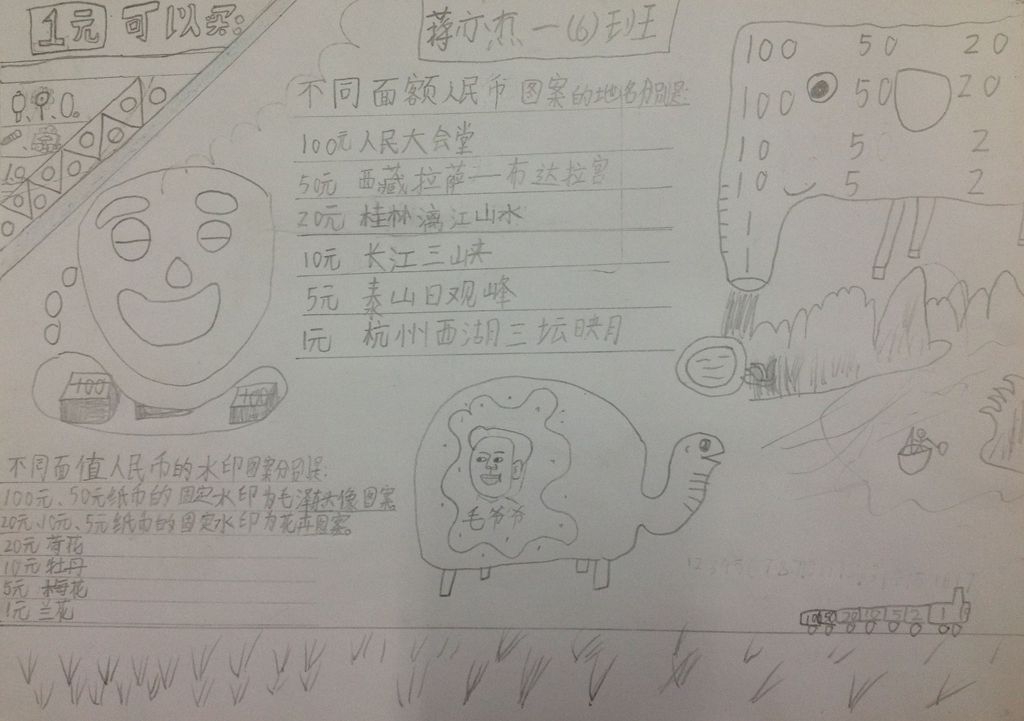 1元 可以买:
蒋亦杰一(6)班
不同面额人民币图案的地名分别是:
100元人民大会堂
50元 西藏拉萨—布达拉宫
20元 桂林漓江山水
10元 长江三峡
5元 泰山日观峰
1元 杭州西湖三坛映月
100 50 20
100 50 20
10 5 2
10 5 2
1
1
100 100
不同面值人民币的水印图案分别是:
100元、50元纸币的固定水印为毛泽东头像图案
20元、10元、5元纸币的固定水印为花卉图案。
20元 荷花
10元 牡丹
5元 梅花
1元 兰花
毛爷爷
20 10 5 2 1